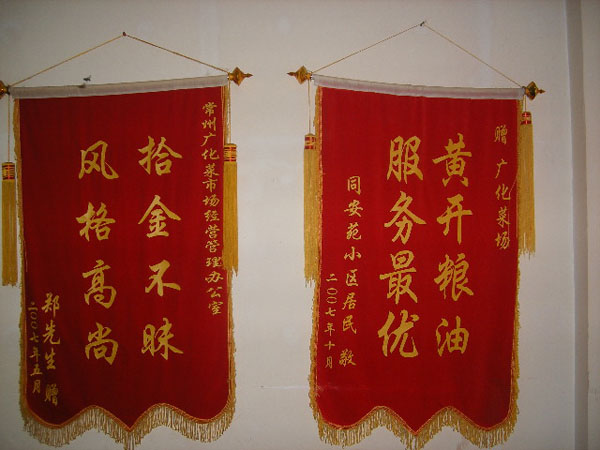 常州广化菜市场经营管理办公室
拾金不昧
风格高尚
郑先生赠
二〇〇七年五月
赠 广化菜场
黄开粮油
服务最优
同安苑小区居民 敬
二〇〇七年十月